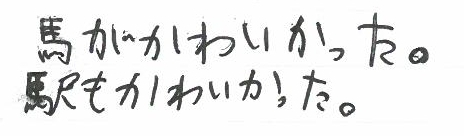 馬がかわいかった。
駅もかわいかった。